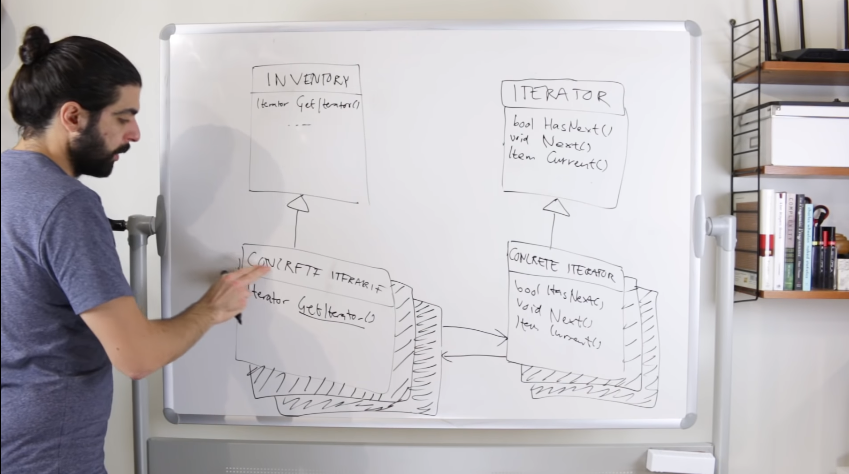 INVENTORY
Iterator GetIterator()
...
ITERATOR
bool HasNext()
void Next()
Item Current()
CONCRETE ITERABLE
Iterator GetIterator()
CONCRETE ITERATOR
bool HasNext()
void Next()
Item Current()